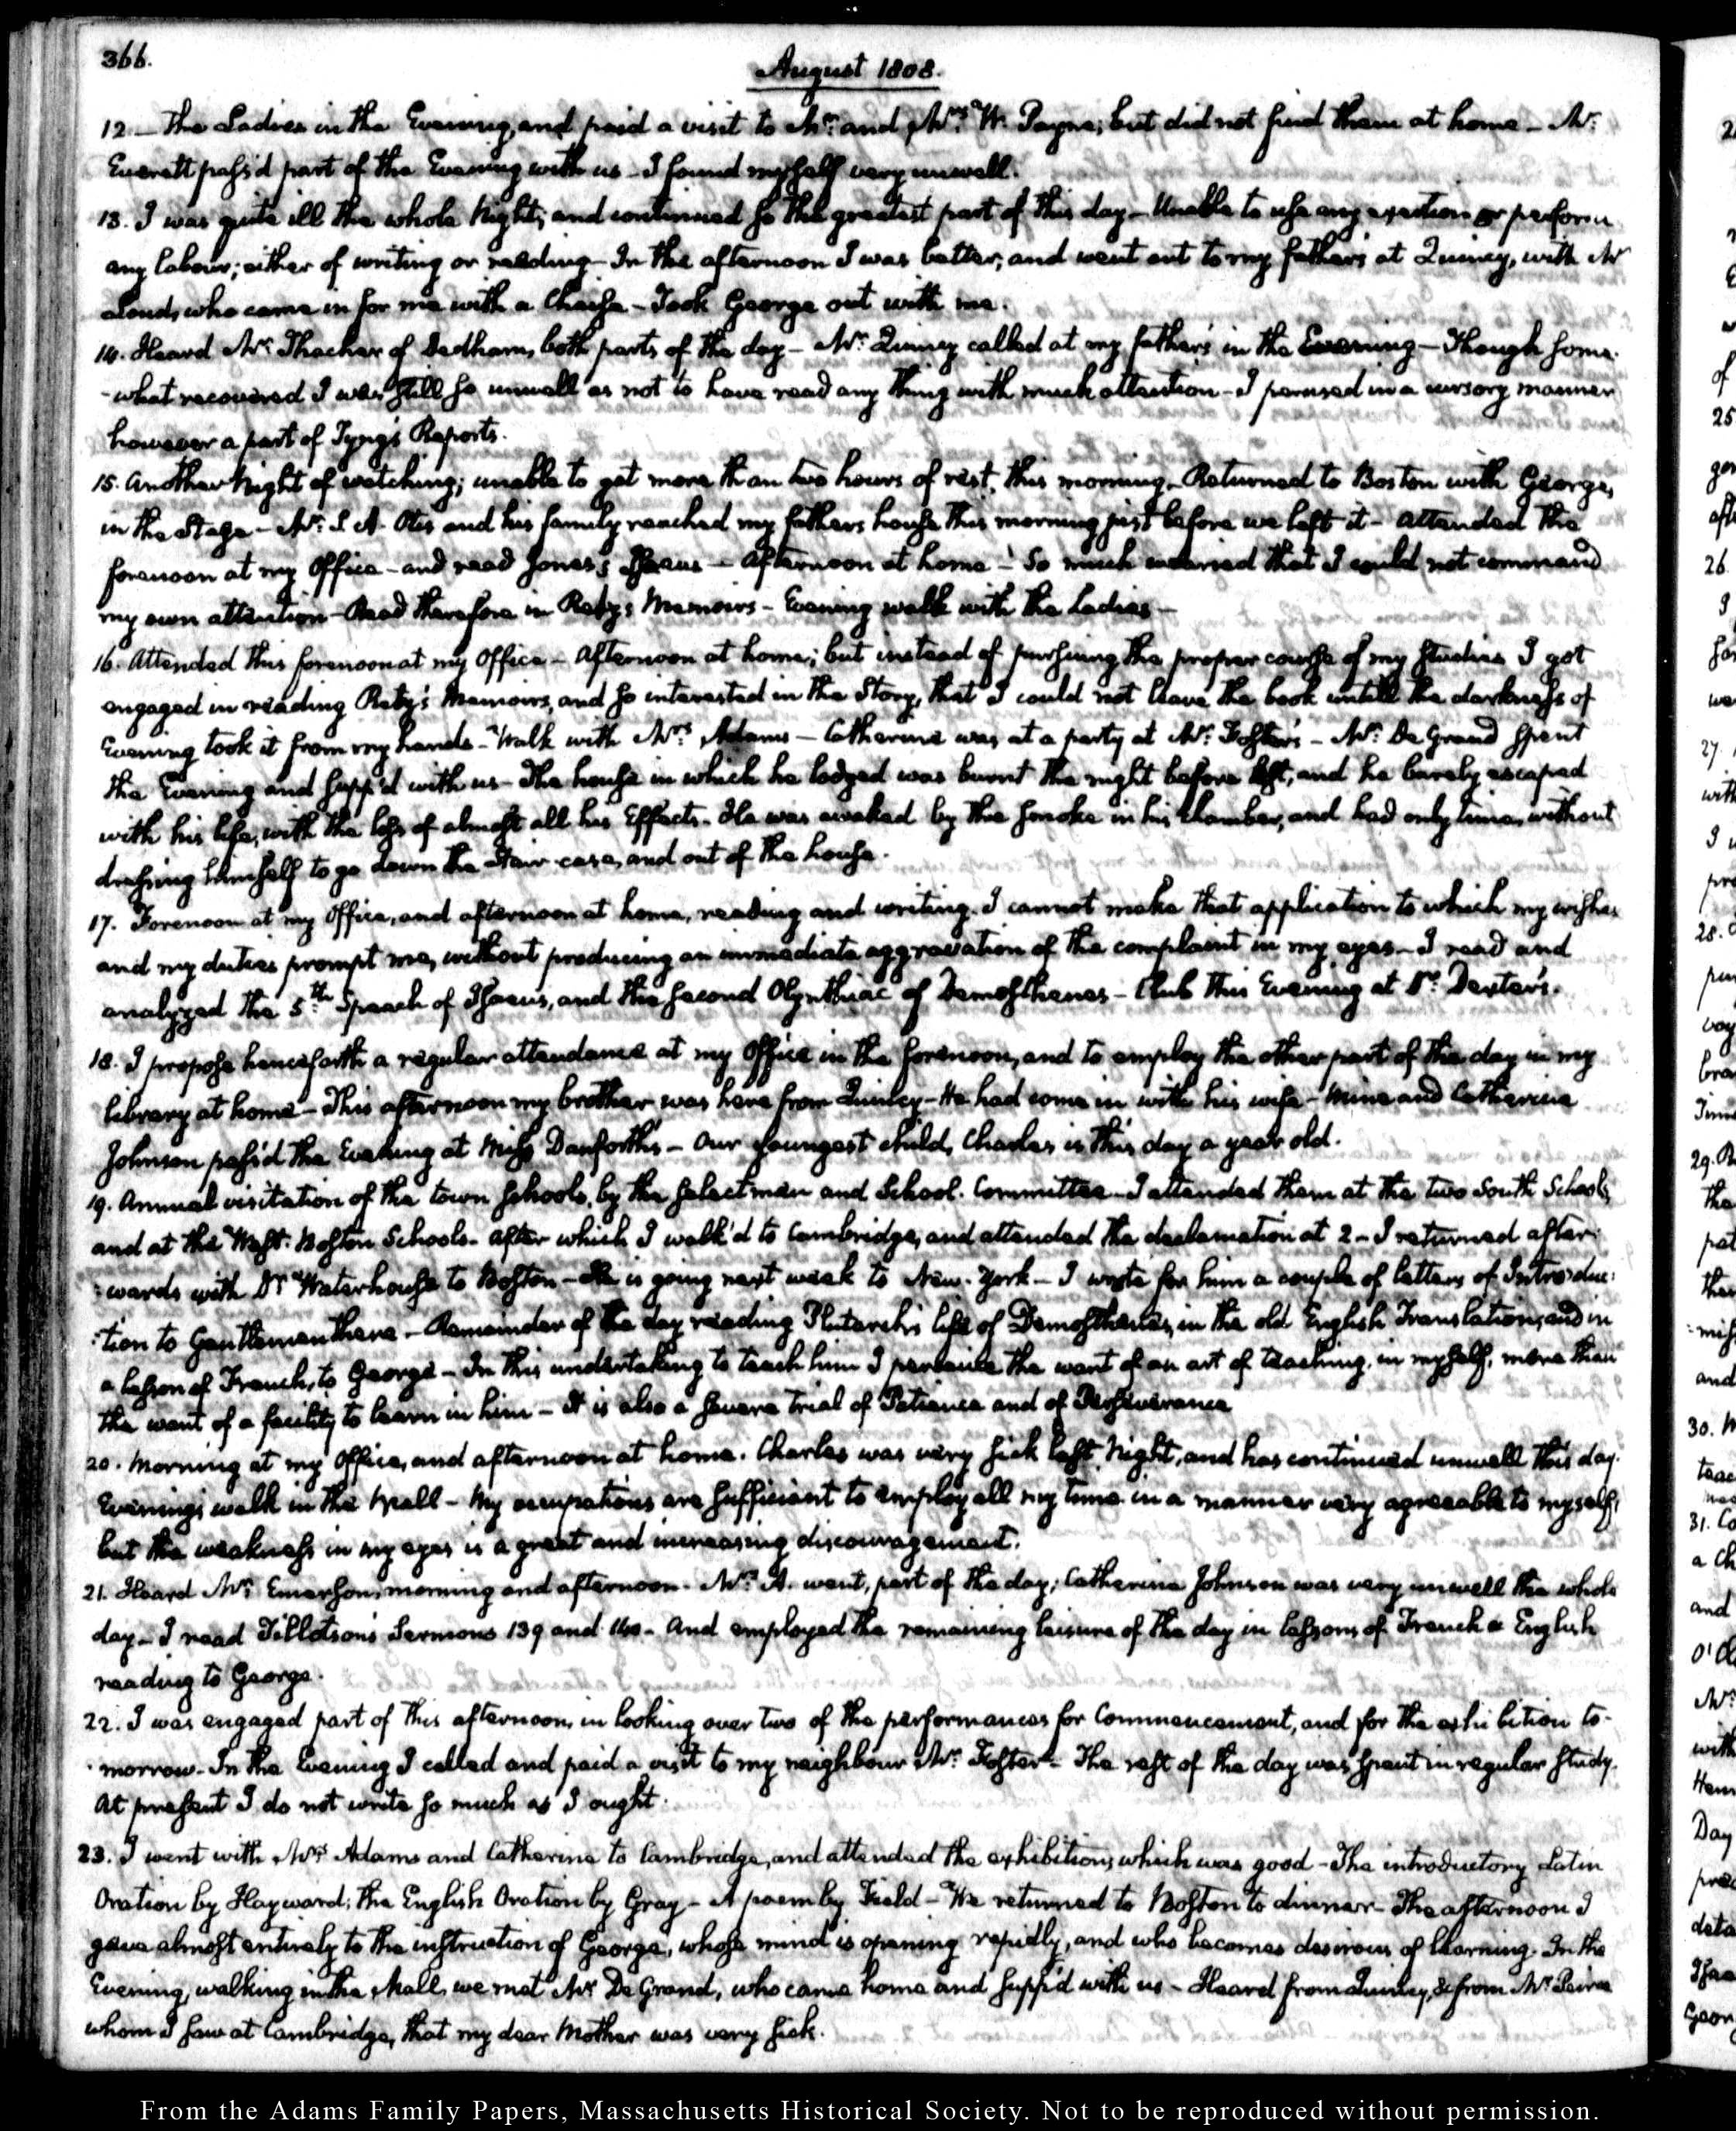 366.
August 1808.
12 — The Ladies in the Evening, and paid a visit to Mr. and Mrs. W. Payne; but did not find them at home — Mr.
Everett pass'd part of the Evening with us — I found myself very unwell.
13. I was quite ill the whole Night, and continued so the greatest part of this day — Unable to use any exertion or perform
any labour; either of writing or reading — In the afternoon I was better, and went out to my father's at Quincy, with Mr
Loud, who came in for me with a Chaise — Took George out with me.
14. Heard Mr. Thacher of Dedham, both parts of the day — Mr. Quincy called at my father's in the Evening — Though some-
-what recovered I was still so unwell as not to have read any thing with much attention — I perused in a cursory manner
however a part of Tyng's Reports.
15. Another Night of watching; unable to get more than two hours of rest, this morning. Returned to Boston with George,
in the Stage — Mr. S. A. Otis and his family reached my fathers house this morning just before we left it — Attended the
forenoon at my Office — and read Jones's Isaeus — Afternoon at home — So much wearied that I could not command
my own attention — Read therefore in Retz's Memoirs — Evening walk with the Ladies —
16. Attended this forenoon at my Office — Afternoon at home; but instead of pursuing the proper course of my Studies I got
engaged in reading Retz's Memoirs, and so interested in the Story, that I could not leave the book untill the darkness of
Evening took it from my hands — Walk with Mrs. Adams — Catherine was at a party at Mr. Foster's — Mr. De Grand spent
the Evening and supp'd with us — The house in which he lodged was burnt the night before last, and he barely escaped
with his life, with the loss of almost all his Effects. He was awaked by the smoke in his Chamber, and had only time, without
dressing himself to go down the Stair case, and out of the house.
17. Forenoon at my Office, and afternoon at home, reading and writing. I cannot make that application to which my wishes
and my duties prompt me, without producing an immediate aggravation of the complaint in my eyes — I read and
analyzed the 5th Speech of Isaeus, and the second Olynthiac of Demosthenes — Club this Evening at Dr. Dexter's.
18. I propose henceforth a regular attendance at my Office in the forenoon, and to employ the other part of the day in my
library at home — This afternoon my brother was here from Quincy — He had come in with his wife — Mine and Catherine
Johnson pass'd the Evening at Miss Danforth's — Our youngest child, Charles is this day a year old.
19. Annual visitation of the town schools, by the Selectmen and School-Committee — I attended them at the two South Schools,
and at the West-Boston Schools — After which I walk'd to Cambridge, and attended the declamation at 2 — I returned after-
-wards with Dr Waterhouse to Boston — He is going next week to New-York — I wrote for him a couple of letters of Introduc-
-tion to Gentlemen there — Remainder of the day reading Plutarch's life of Demosthenes, in the old English Translation, and in
a lesson of French, to George — In this undertaking to teach him I perceive the want of an art of teaching, in myself, more than
the want of a facility to learn in him — It is also a severe trial of Patience and of Perseverance
20. Morning at my Office, and afternoon at home. Charles was very sick last Night, and has continued unwell this day.
Evening's walk in the Mall — My occupations are sufficient to employ all my time in a manner very agreeable to myself,
but the weakness in my eyes is a great and increasing discouragement.
21. Heard Mr. Emerson, morning and afternoon. Mrs. A. went, part of the day; Catherine Johnson was very unwell the whole
day — I read Tillotson's Sermons 139 and 140 — And employed the remaining leisure of the day in lessons of French & English
reading to George.
22. I was engaged part of this afternoon, in looking over two of the performances for Commencement, and for the exhibition to-
-morrow. In the Evening I called and paid a visit to my neighbour Mr. Foster — The rest of the day was spent in regular study.
At present I do not write so much as I ought.
23. I went with Mrs. Adams and Catherine to Cambridge, and attended the exhibition, which was good — The introductory Latin
Oration by Hayward; the English Oration by Gray — A poem by Field — We returned to Boston to dinner — The afternoon I
gave almost entirely to the instruction of George, whose mind is opening rapidly, and who becomes desirous of learning. In the
Evening, walking in the Mall, we met Mr. De Grand, who came home and supp'd with us — Heard from Quincy, & from Mr
whom I saw at Cambridge, that my dear Mother was very sick.
From the Adams Family Papers, Massachusetts Historical Society. Not to be reproduced without permission.